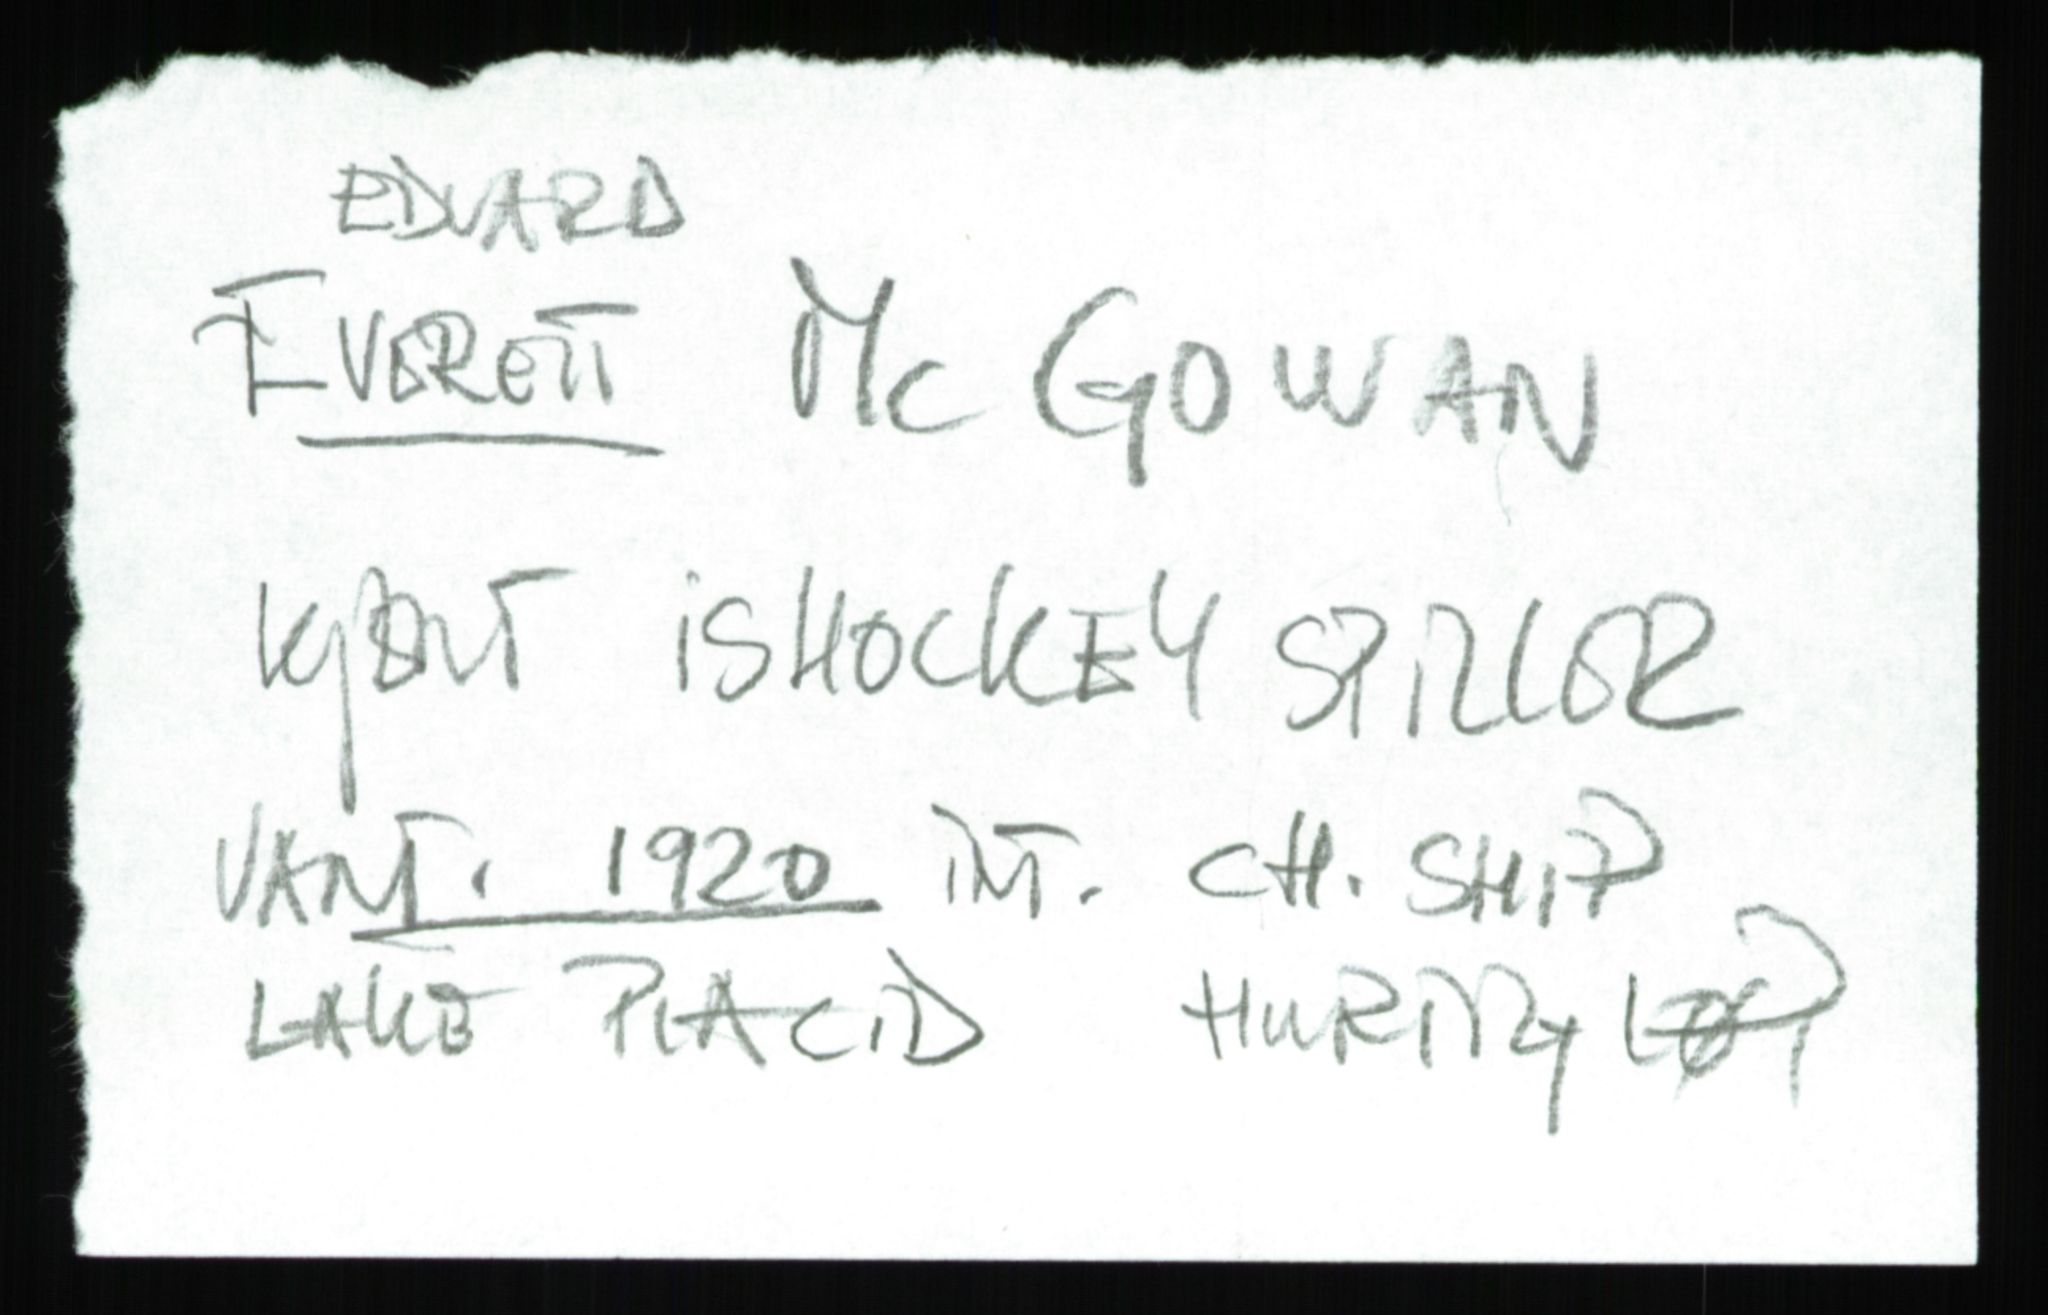 EDVARD
EVERETT Mc GOWAN
KJENT ISHOCKEY SPILLER
VANT. 1920 INT. CH. SHIP
LAKE PLACID HURTIGLØP